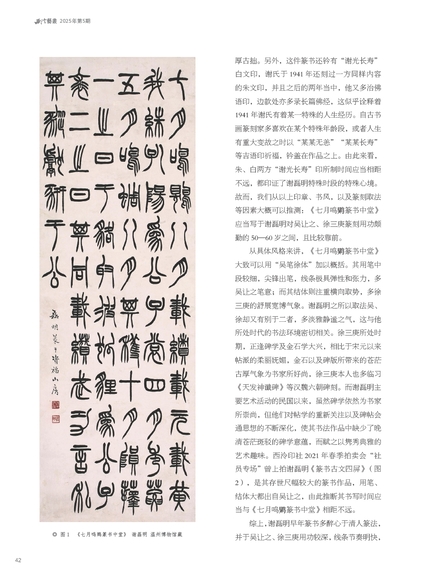 2025年第5期
七月鳴鵙八月載績載元載黃
我朱孔陽為公子裳四月秀葽
五月鳴蜩八月其穫十月隕蘀
一之日于貉取彼狐狸為公子
裘二之日其同載纘武功言私
其豵獻豣于公
图1 《七月鸣鵙篆书中堂》 谢磊明 温州博物馆藏
厚古拙。另外，这件篆书还钤有“谢光长寿”
白文印，谢氏于1941年还刻过一方同样内容
的朱文印，并且之后的两年当中，他又多治佛
语印，边款处亦多录长篇佛经，这似乎诠释着
1941年谢氏有着某一特殊的人生经历。自古书
画篆刻家多喜欢在某个特殊年龄段，或者人生
有重大变故之时以“某某无恙”“某某长寿”
等吉语印祈福，钤盖在作品之上。由此来看，
朱、白两方“谢光长寿”印所制时间应当相距
不远，都印证了谢磊明特殊时段的特殊心境。
故而，我们从以上印章、书风，以及篆刻取法
等因素大概可以推测：《七月鸣鵙篆书中堂》
应当写于谢磊明对吴让之、徐三庚篆刻用功颇
勤的50—60岁之间，且比较靠前。
从具体风格来讲，《七月鸣鵙篆书中堂》
大致可以用“吴笔徐体”加以概括。其用笔中
段较细，尖锋出笔，线条极具弹性和张力，多
吴让之笔意；而其结体则注重横向取势，多徐
三庚的舒展宽博气象。谢磊明之所以取法吴、
徐却又有别于二者，多淡雅静谧之气，这与他
所处时代的书法环境密切相关。徐三庚所处时
期，正逢碑学及金石学大兴，相比于宋元以来
帖派的柔靡妩媚，金石以及碑版所带来的苍茫
古厚气象为书家所好尚。徐三庚本人也多临习
《天发神谶碑》等汉魏六朝碑刻。而谢磊明主
要艺术活动的民国以来，虽然碑学依然为书家
所崇尚，但他们对帖学的重新关注以及碑帖会
通思想的不断深化，使其书法作品中缺少了晚
清苍茫斑驳的碑学意蕴，而赋之以隽秀典雅的
艺术趣味。西泠印社2021年春季拍卖会“社
员专场”曾上拍谢磊明《篆书古文四屏》（图
2），是其存世尺幅较大的篆书作品，用笔、
结体大都出自吴让之，由此推断其书写时间应
当与《七月鸣鵙篆书中堂》相距不远。
综上，谢磊明早年篆书多醉心于清人篆法，
并于吴让之、徐三庚用功较深，线条节奏明快，
42